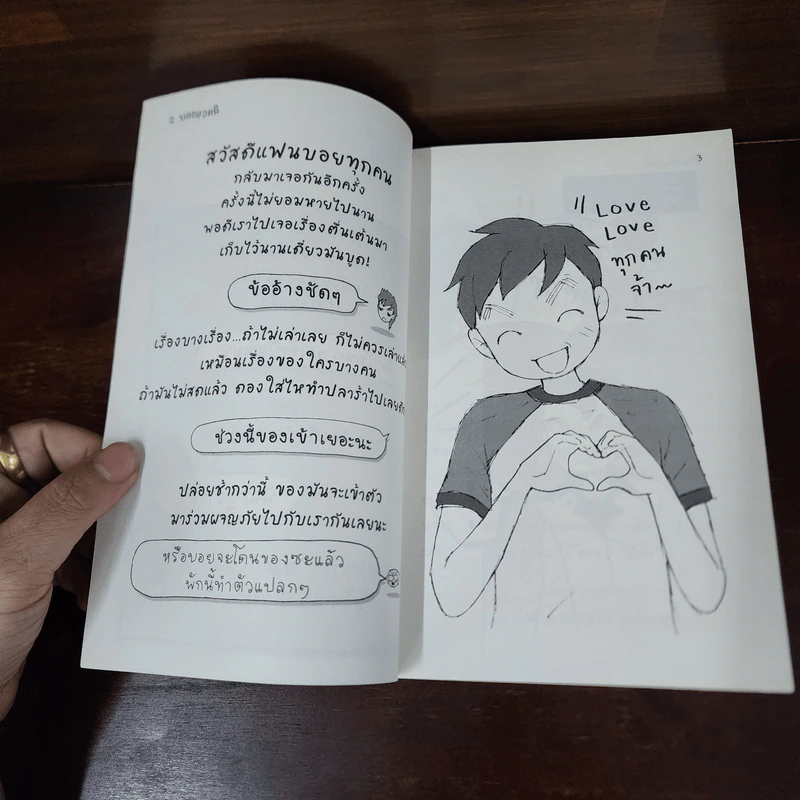 2 บอยอวดผี
สวัสดีแฟนบอยทุกคน
กลับมาเจอกันอีกครั้ง
ครั้งนี้ไม่ยอมหายไปนาน
พอดีเราไปเจอเรื่องตื่นเต้นมา
เก็บไว้นานเดี๋ยวมันบูด!
ข้ออ้างชัดๆ
เรื่องบางเรื่อง...ถ้าไม่เล่าเลย ก็ไม่ควรเล่าแล้ว
เหมือนเรื่องของใครบางคน
ถ้ามันไม่สดแล้ว ดองใส่ไหทำปลาร้าไปเลย
ช่วงนี้ของเข้าเยอะนะ
ปล่อยช้ากว่านี้ ของมันจะเข้าตัว
มาร่วมผจญภัยไปกับเรากันเลยนะ
หรือบอยจะโดนของซะแล้ว
พักนี้ทำตัวแปลกๆ
3
Love
Love
ทุกคน
จ้า~